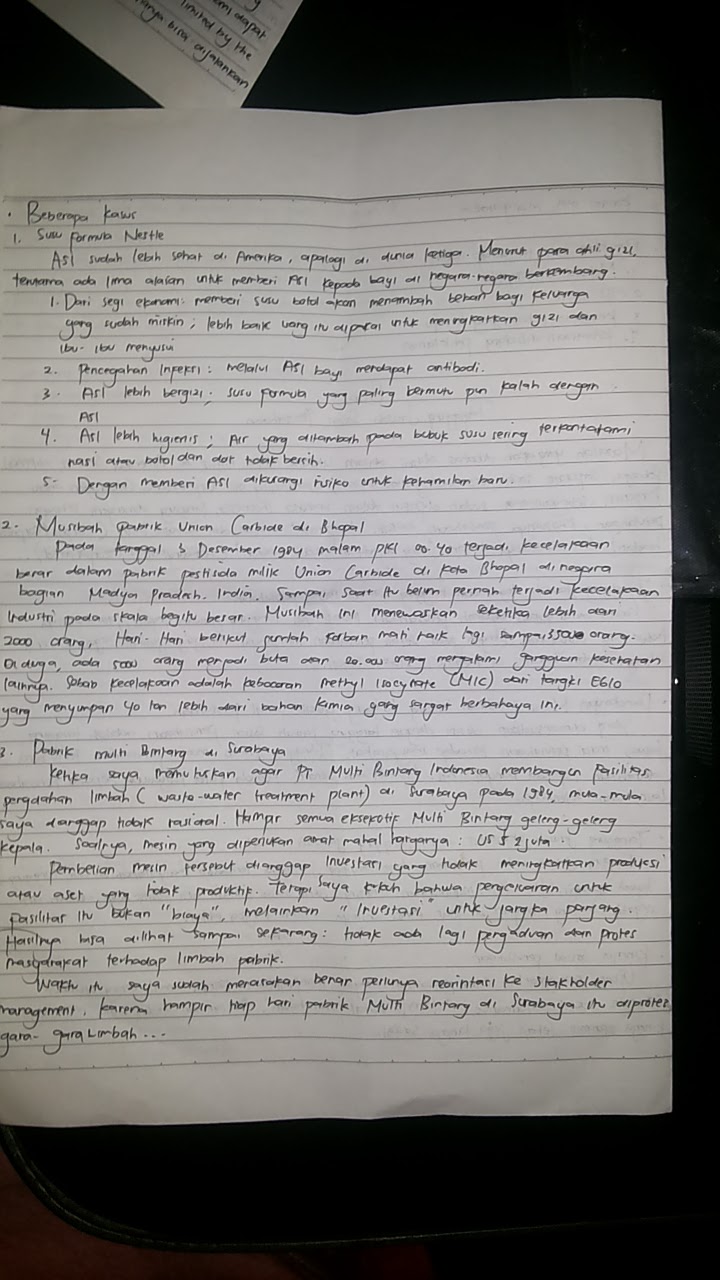 mi dapat
limited by the
anya bisa dijalankan
• Beberapa kasus
1. Susu Formula Nestle
ASI sudah lebih sehat di Amerika, apalagi di dunia ketiga. Menurut para ahli gizi,
terutama ada lima alasan untuk memberi ASI kepada bayi di negara-negara berkembang.
1. Dari segi ekonomi: memberi susu botol akan menambah beban bagi keluarga
yang sudah miskin; lebih baik uang itu dipakai untuk meningkatkan gizi dan
ibu-ibu menyusui
2. Pencegahan Infeksi: melalui ASI bayi mendapat antibodi.
3. ASI lebih bergizi; susu formula yang paling bermutu pun kalah dengan
ASI
4. ASI lebih higienis; Air yang ditambah pada bubuk susu sering terkontatami
nasi atau botol dan dot tidak bersih.
5. Dengan memberi ASI dikurangi risiko untuk kehamilan baru.
2. Musibah pabrik Union Carbide di Bhopal
Pada tanggal 3 Desember 1984 malam pkl 00.40 terjadi kecelakaan
besar dalam pabrik pestisida milik Union Carbide di kota Bhopal di negara
bagian Madya Pradesh, India. Sampai saat itu belum pernah terjadi kecelakaan
industri pada skala begitu besar. Musibah ini menewaskan seketika lebih dari
2000 orang, Hari-Hari berikut jumlah korban mati naik lagi sampai orang.
Diduga, ada 5000 orang menjadi buta dan 20.000 orang mengalami gangguan kesehatan
lainnya. Sebab kecelakaan adalah kebocoran methyl Isocynate (MIC) dari tangki E610
yang menyimpan 40 ton lebih dari bahan kimia yang sangat berbahaya ini.
3. Pabrik multi Bintang di Surabaya
Ketika saya memutuskan agar PT Multi Bintang Indonesia membangun fasilitas
pengolahan limbah (waste-water treatment plant) di Surabaya pada 1984, mula-mula
saya dianggap tidak rasional. Hampir semua eksekutif Multi Bintang geleng-geleng
kepala. Soalnya, mesin yang diperlukan amat mahal harganya: US $ 2 juta.
Pembelian mesin tersebut dianggap Investasi yang tidak meningkatkan produksi
atau aset yang tidak produktif. Tetapi saya kukuh bahwa pengeluaran untuk
fasilitas itu bukan "biaya", melainkan "Investasi" untuk jangka panjang.
Hasilnya bisa dilihat sampai sekarang: tidak ada lagi pengaduan dan protes
masyarakat terhadap limbah pabrik.
Waktu itu saya sudah merasakan benar perlunya reorintasi ke stakholder
management, karena hampir tiap hari pabrik Multi Bintang di Surabaya itu diprotes
gara-gara Limbah...